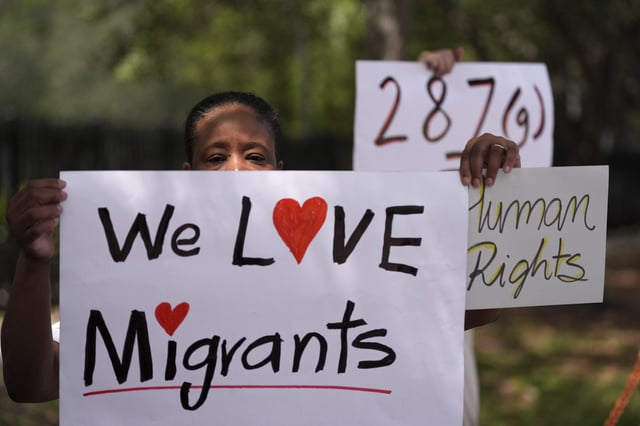 287(g)
We L♥VE
Migrants
Human
Rights